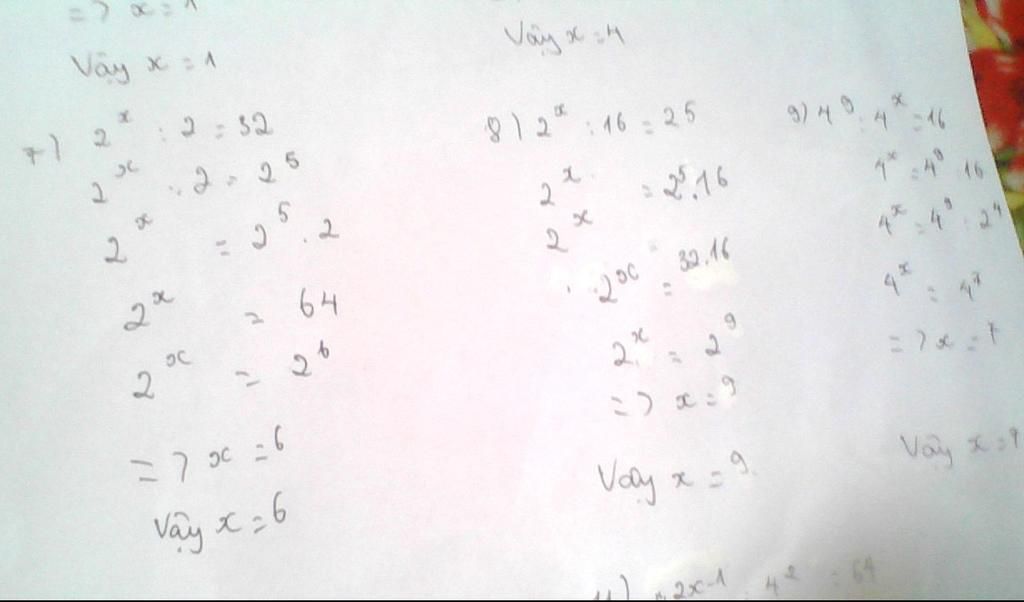 => x = 1
Vậy x = 1
7) 2^x : 2 = 32
2^x : 2 = 2^5
2^x = 2^5 . 2
2^x = 64
2^x = 2^6
=> x = 6
Vậy x = 6
Vậy x = 4
8) 2^x : 16 = 2^5
2^x = 2^5 . 16
2^x
2^x = 32 . 16
2^x = 2^9
=> x = 9
Vậy x = 9.
9) 4^9 : 4^x = 16
4^x = 4^9 : 16
4^x = 4^9 : 2^4
4^x = 4^7
=> x = 7
Vậy x = 7
11) 2x-1 4^2 = 64